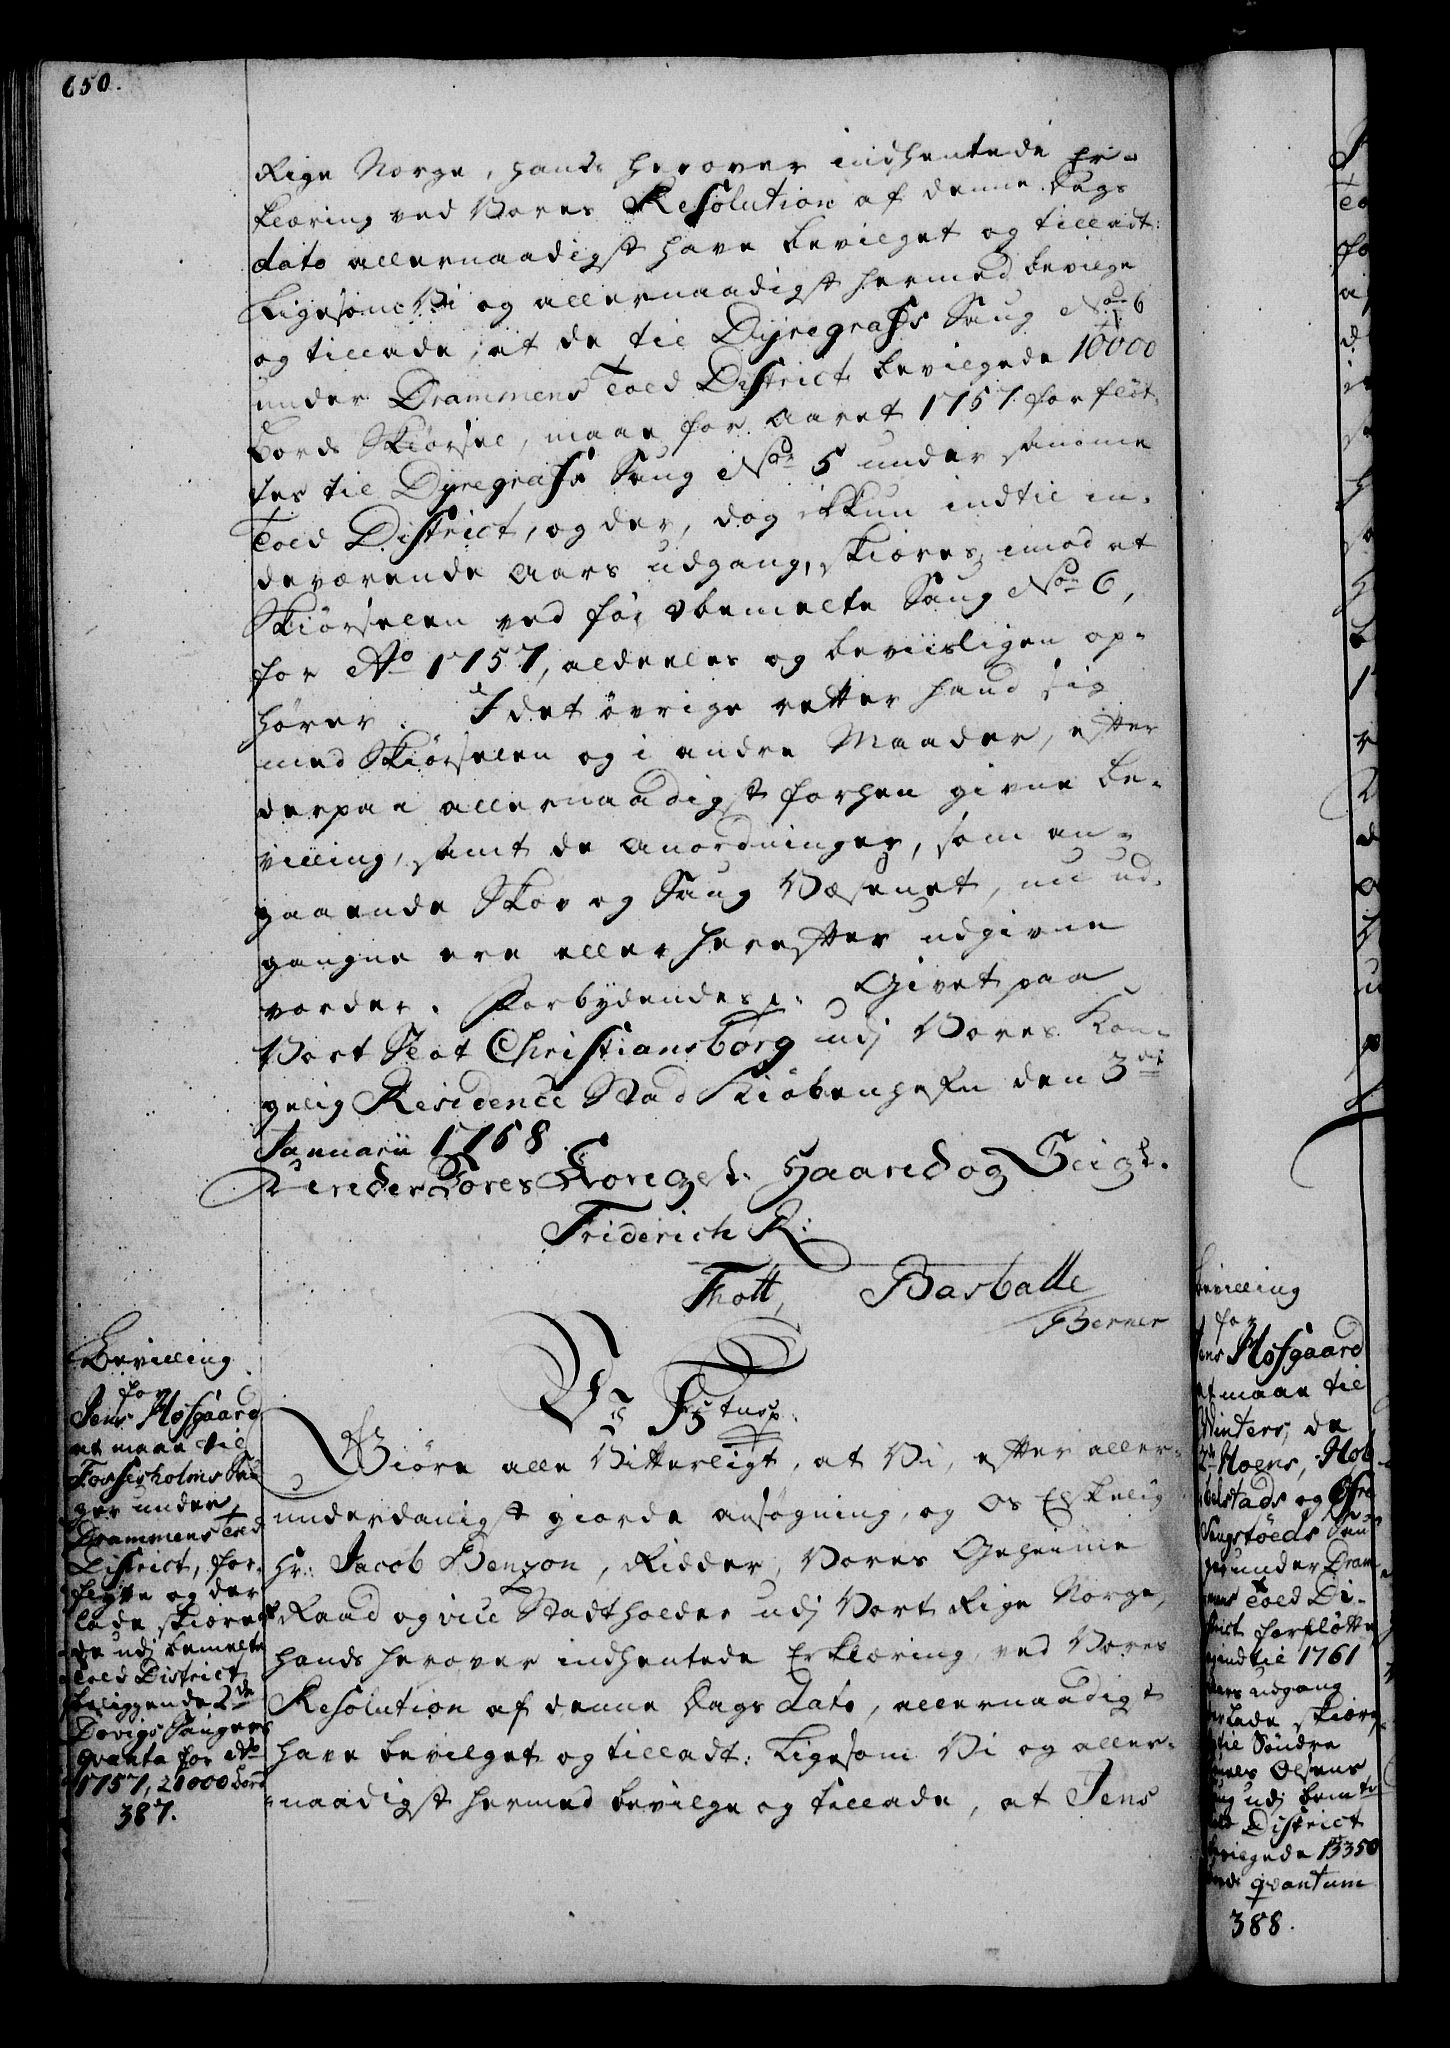 650.
Rige Norge, hands herover indhentede Er-
klæring ved Vores Resolution af denne Dags
dato allernaadigst have bevilget og tilladt:
Ligesom Vi og allernaadigst hermed bevilge
og tillade, at de til Dyregrafs Saug No 6
under Drammens Told District bevilgede 10000
Bords Skiørsel, maae for Aaret 1757 forfløt-
tes til Dyregrafs Saug No 5 under samme
Told District, og der, dog ikkun indtil in-
deværende Aars udgang, skiøres, imod at
Skiørselen ved før bemelte Saug No 6,
for Ao 1757, aldeeles og beviisligen op-
hører. I det øvrige retter hand sig
med Skiørselen og i andre Maader, efter
derpaa allernaadigst forhen givne Be-
villing, samt de Anordninger, som an-
gaaende Skov og Saug Væsenet, nu ud-
gangne ere eller herefter udgivne
vorder. Forbydendes p: Givet paa
Vort Slot Christiansborg udj Vores Kon-
gelig Residence Stad Kiøbenhafn den 3de
Januarii 1758
Under Vores Kongel: Haand og Seigl.
Friderich R:
Thott, Barballe
Berner
Bevilling
for
Jens Hofgaard
at maae til
Fossesholms Sau-
ger under
Drammens Told
District, for-
flytte og der
lade skiøre
de udj bemelte
Told District
beliggende 2de
Dovigs Saugers
qvanta for Ao
1757, 21000 bord
387.
Vi F 5tus p:
Giøre alle Vitterligt, at Vi, efter aller-
underdanigst giorde ansøgning, og Os Elskelig
Hr: Jacob Benzon, Ridder, Vores Geheime
Raad og vice Stadtholder udj Vort Rige Norge,
hands herover indhentede Erklæring, ved Vores
Resolution af denne Dags dato, allernaadigst
have bevilget og tilladt: Ligesom Vi og aller-
naadigst hermed bevilge og tillade, at Jens
Bevilling
for
Jens Hofgaard
at maae til
Winters, de
2de Hoens, Hob-
belstads og Øfre
Saugstøeds Sau-
ger under Dram-
mens Told Di-
strict forfløtte
indtil 1761
Aars udgang
lade skiøre
til Søndre
Olsens
Saug udj bemte
Told District
bevilgede 13350
bords qvantum
388.